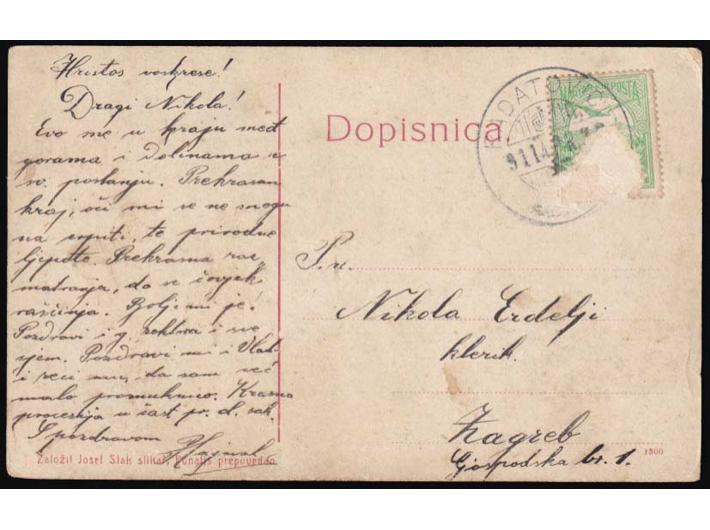 Hristos voskrese!
Dragi Nikola!
Evo me u kraju među
gorama i dolinama
postanju. Prekrasan
kraj, oči mi se ne mogu
na te prirodne
ljepote. Prehrana raz-
matranja, da se čovjek
Bolje mi je!
Pozdravi i
Pozdravi mi i Vlat-
i reci mu, da sam već
malo promuknuo. Krasna
procesija u čast pr. d. sak.
S pozdravom
Založil Josef Slak slikar, Ponatis prepovedan
Dopisnica
RADATOVIĆI
911
POSTA
Pr.
Nikola Erdelji
klerik.
Zagreb
Gospodska br. 1.
1300